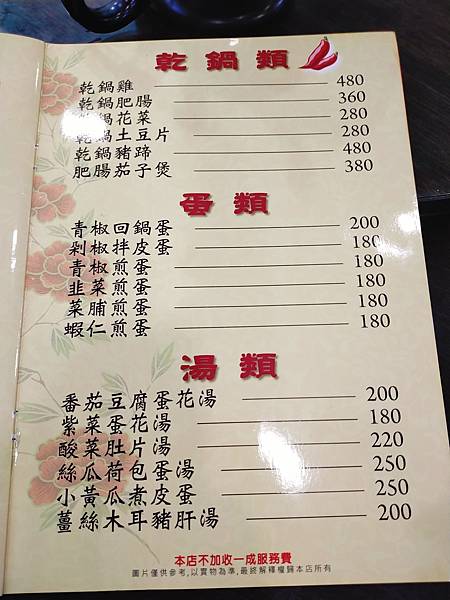 乾鍋類
乾鍋雞 480
乾鍋肥腸 360
乾鍋花菜 280
乾鍋土豆片 280
乾鍋豬蹄 480
肥腸茄子煲 380
蛋類
青椒回鍋蛋 200
剁椒拌皮蛋 180
青椒煎蛋 180
韭菜煎蛋 180
菜脯煎蛋 180
蝦仁煎蛋 180
湯類
番茄豆腐蛋花湯 200
紫菜蛋花湯 180
酸菜肚片湯 220
絲瓜荷包蛋湯 250
小黃瓜煮皮蛋 250
薑絲木耳豬肝湯 200
本店不加收一成服務費
圖片僅供參考,以實物為準,最終解釋權歸本店所有